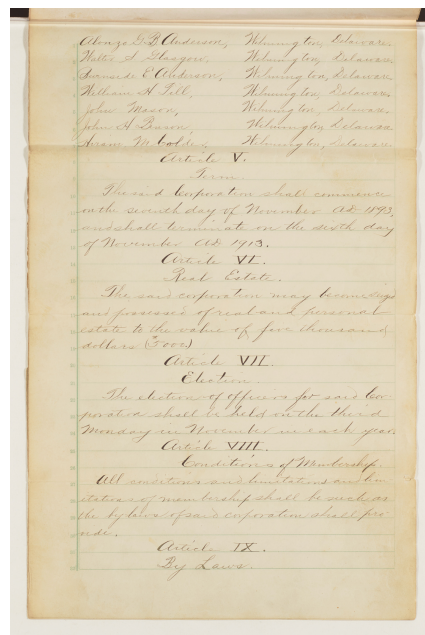 Alonzo G. B. Anderson, Wilmington, Delaware.
Walter S. Glasgow, Wilmington, Delaware.
Burnside E. Anderson, Wilmington, Delaware.
William H. Fell, Wilmington, Delaware.
John Mason, Wilmington, Delaware.
John H. Wilmington, Delaware.
Hiram M. Wilmington, Delaware.
Article V.
Term.
The said Corporation shall commence
on the seventh day of November A.D. 1893,
and shall terminate on the sixth day
of November A.D. 1913.
Article VI.
Real Estate.
The said corporation may become
and possessed of real and personal
estate to the value of five thousand
dollars (5000)
Article VII.
Election.
The election of officers for said Cor-
poration shall be held on the third
Monday in November in each year.
Article VIII.
Conditions of Membership.
All conditions and limitations and
of membership shall be such as
the by laws of said corporation shall pro-
vide.
Article IX.
By Laws.